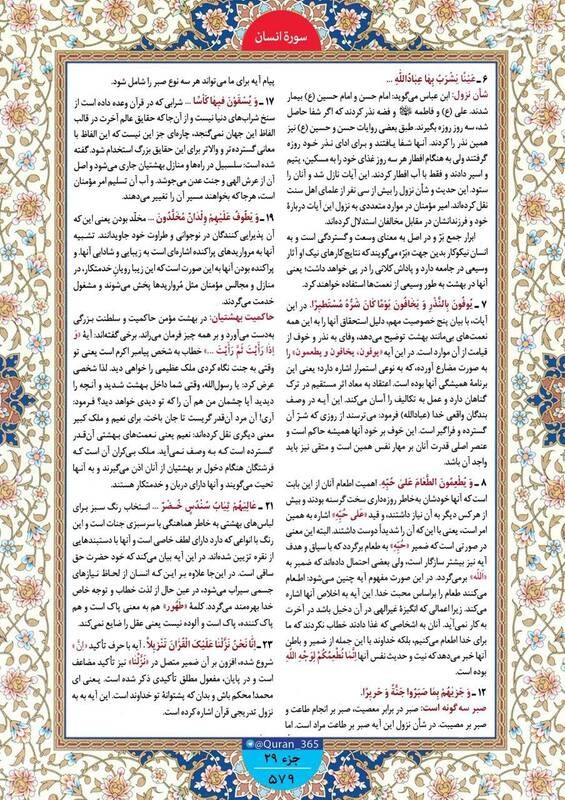 سورهٔ انسان
۶ ـ عَیْنًا یَشْرَبُ بِهَا عِبَادُ اللَّهِ ...
شأن نزول: ابن عباس می‌گوید: امام حسن و امام حسین (ع) بیمار
شدند. علی (ع) و فاطمه و فضه نذر کردند که اگر شفا حاصل
شد، سه روز روزه بگیرند. طبق بعضی روایات حسن و حسین (ع) نیز
همین نذر را کردند. آنها شفا یافتند و برای ادای نذر خود روزه
گرفتند ولی به هنگام افطار هر سه روز غذای خود را به مسکین، یتیم
و اسیر دادند و فقط با آب افطار کردند. این آیات نازل شد و آنان را
ستود. این حدیث و شأن نزول را بیش از سی نفر از علمای اهل سنت
نقل کرده‌اند. امیر مؤمنان در موارد متعددی به نزول این آیات دربارهٔ
خود و فرزندانشان در مقابل مخالفان استدلال کرده‌اند.
ابرار جمع بَرّ و در اصل به معنای وسعت و گستردگی است و به
انسان نیکوکار بدین جهت «بَرّ» می‌گویند که نتایج کارهای نیک او آثار
وسیعی در جامعه دارد و پاداش کلانی را در پی خواهد داشت؛ یعنی
آنها در بهشت به طور وسیعی از نعمت‌ها استفاده خواهند کرد.
۷ ـ یُوفُونَ بِالنَّذْرِ وَ یَخَافُونَ یَوْمًا کَانَ شَرُّهُ مُسْتَطِیرًا. در این
آیات، با بیان پنج خصوصیت مهم، دلیل استحقاق آنها را به این همه
نعمت‌های بی‌مانند بهشت توضیح می‌دهد، وفای به نذر و خوف از
قیامت از آن موارد است. در این آیه «یوفون، یخافون و یطعمون» را
به صورت مضارع آورده، که به نوعی استمرار اشاره دارد؛ یعنی این
برنامهٔ همیشگی آنها بوده است. اعتقاد به معاد اثر مستقیم در ترک
گناهان دارد و عمل به تکالیف را آسان می‌کند. این آیه در وصف
بندگان واقعی خدا (عبادالله) فرمود: می‌ترسند از روزی که شرّ آن
گسترده و فراگیر است. این خوف بر خود آنها همیشه حاکم است و
عنصر اصلی قدرت آنان بر مهار نفس همین است و متقی نیز باید
واجد آن باشد.
۸ ـ وَ یُطْعِمُونَ الطَّعَامَ عَلَى حُبِّهِ. اهمیت اطعام آنان از این بابت
است که آنها خودشان به‌خاطر روزه‌داری سخت گرسنه بودند و بیش
از هرکس دیگر به آن نیاز داشتند، و قید «عَلَى حُبِّهِ» اشاره به همین
امر است، یعنی با این‌که آن را شدیداً دوست داشتند. البته این معنی
در صورتی است که ضمیر «حُبِّهِ» به طعام برگردد که با سیاق و هدف
آیه نیز بیشتر سازگار است، ولی بعضی احتمال داده‌اند که ضمیر به
«اللّه» برمی‌گردد. در این صورت مفهوم آیه چنین می‌شود: اطعام
می‌کنند طعام را براساس محبت خدا. این آیه به اخلاص آنها اشاره
می‌کند. زیرا اعمالی که انگیزهٔ غیرالهی در آن دخیل باشد در آخرت
به کار نمی‌آید. آنان به اشخاصی که غذا دادند خطاب نکردند که ما
برای خدا اطعام می‌کنیم، بلکه خداوند با این جمله از ضمیر و باطن
آنها خبر می‌دهد که نیت و حدیث نفس آنها إِنَّمَا نُطْعِمُکُمْ لِوَجْهِ اللَّهِ
بوده است.
۱۲ ـ وَ جَزَیٰهُمْ بِمَا صَبَرُوا جَنَّةً وَ حَرِیرًا.
صبر سه گونه است: صبر در برابر معصیت، صبر بر انجام طاعت و
صبر بر مصیبت. در شأن نزول این آیه صبر بر طاعت مراد است. اما
پیام آیه برای ما می‌تواند هر سه نوع صبر را شامل شود.
۱۷ ـ وَ یُسْقَوْنَ فِیهَا کَأْسًا ... شرابی که در قرآن وعده داده است از
سنخ شراب‌های دنیا نیست و از آن‌جاکه حقایق عالم آخرت در قالب
الفاظ این جهان نمی‌گنجد، چاره‌ای جز این نیست که این الفاظ با
معانی گسترده‌تر و والاتر برای این حقایق بزرگ استفاده شود. گفته
شده است: سلسبیل در راه‌ها و منازل بهشتیان جاری می‌شود و اصل
آن از عرش الهی و جنت عدن می‌جوشد. و آب آن تسلیم امر مؤمنان
است، هرجا که بخواهند مسیر آن را تغییر می‌دهند.
۱۹ ـ وَ یَطُوفُ عَلَیْهِمْ وِلْدَانٌ مُخَلَّدُونَ ... مخلّد بودن یعنی این که
آن پذیرایی کنندگان در نوجوانی و طراوت خود جاویدانند. تشبیه
آنها به مرواریدهای پراکنده اشاره‌ای است به زیبایی و شادابی آنها، و
پراکنده بودن آنها به این صورت است که این زیبا رویانِ خدمتکار، در
منازل و مجالس مؤمنان مثل مُرواریدها پخش می‌شوند و مشغول
خدمت می‌گردند.
حاکمیت بهشتیان: در بهشت مؤمن حاکمیت و سلطنت بزرگی
به‌دست می‌آورد و بر همه چیز فرمان می‌راند. برخی گفته‌اند: آیهٔ «وَ
إِذَا رَأَیْتَ ثَمَّ رَأَیْتَ ...» خطاب به شخص پیامبر اکرم است یعنی تو
وقتی به جنت نگاه کردی ملک عظیمی را خواهی دید. لذا شخصی
عرض کرد: یا رسول‌الله، وقتی شما داخل بهشت شدید و آنچه را
دیدید آیا چشمان من هم آن را که تو دیدی خواهد دید؟ فرمود:
آری! آن مرد آن‌قدر گریست تا جان باخت. برای نعیم و ملک کبیر
معنی دیگری نقل کرده‌اند: نعیم یعنی نعمت‌های بهشتی آن‌قدر
گسترده است کـه به وصف نمی‌آید. ملک بی‌کران آن است کـه
فرشتگان هنگام دخول بر بهشتیان از آنان اذن می‌گیرند و به آنها
تحیت می‌گویند و آنها دارای دربان و خدمتکار هستند.
۲۱ ـ عَالِیَهُمْ ثِیَابُ سُنْدُسٍ خُضْرٌ ... انـتخاب رنگ سبز برای
لباس‌های بهشتی به خاطر هماهنگی با سرسبزی جنات است و این
رنگ با انواعی که دارد دارای لطف خاصی است و آنها با دستبندهایی
از نقره تزیین شده‌اند. در این آیه بیان می‌کند که خود حضرت حق
ساقی است. در این‌جا علاوه بـر این کـه انسان از لحاظ نیازهای
جسمی سیراب می‌شود، در عین حال از لذت خطاب و توجه خاص
خدا بهره‌مند می‌گردد. کلمهٔ «طَهُور» هم به معنی پاک است و هم
پاک کننده. پس پاک است و آلوده نیست یعنی عقل را ضایع نمی‌کند.
۲۳ ـ إِنَّا نَحْنُ نَزَّلْنَا عَلَیْکَ الْقُرْآنَ تَنْزِیلًا. آیه با حرف تأکید «إنّ»
شروع شده، افزون بر آن ضمیر متصل در «نَزَّلْنَا» نیز تأکید مضاعف
است و در پایان، مفعول مطلق تأکیدی ذکر شده است. یعنی ای
محمد! محکم باش و بدان که پشتوانهٔ تو خداوند است. این آیه به
نزول تدریجی قرآن اشاره کرده است.
@Quran_365
جزء ۲۹
۵۷۹